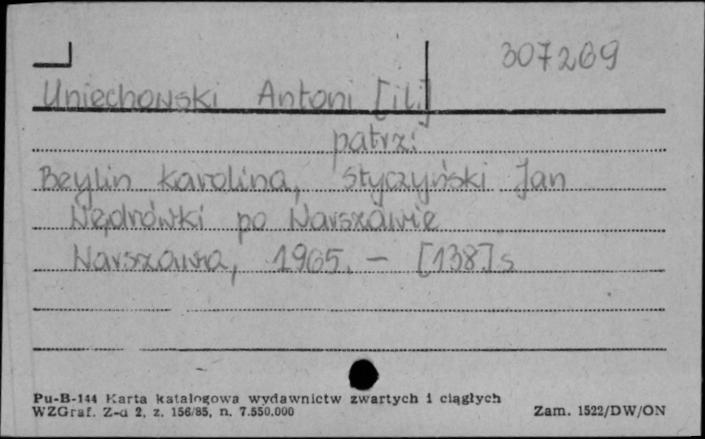 307269
Uniechowski Antoni [il.]
patrz:
Beylin Karolina, Styczyński Jan
Wędrówki po Warszawie
Warszawa, 1965. – [138] s
Pu-B-144 Karta katalogowa wydawnictw zwartych i ciągłych
WZGraf. Z-d 2, z. 156/85, n. 7.550.000
Zam. 1522/DW/ON